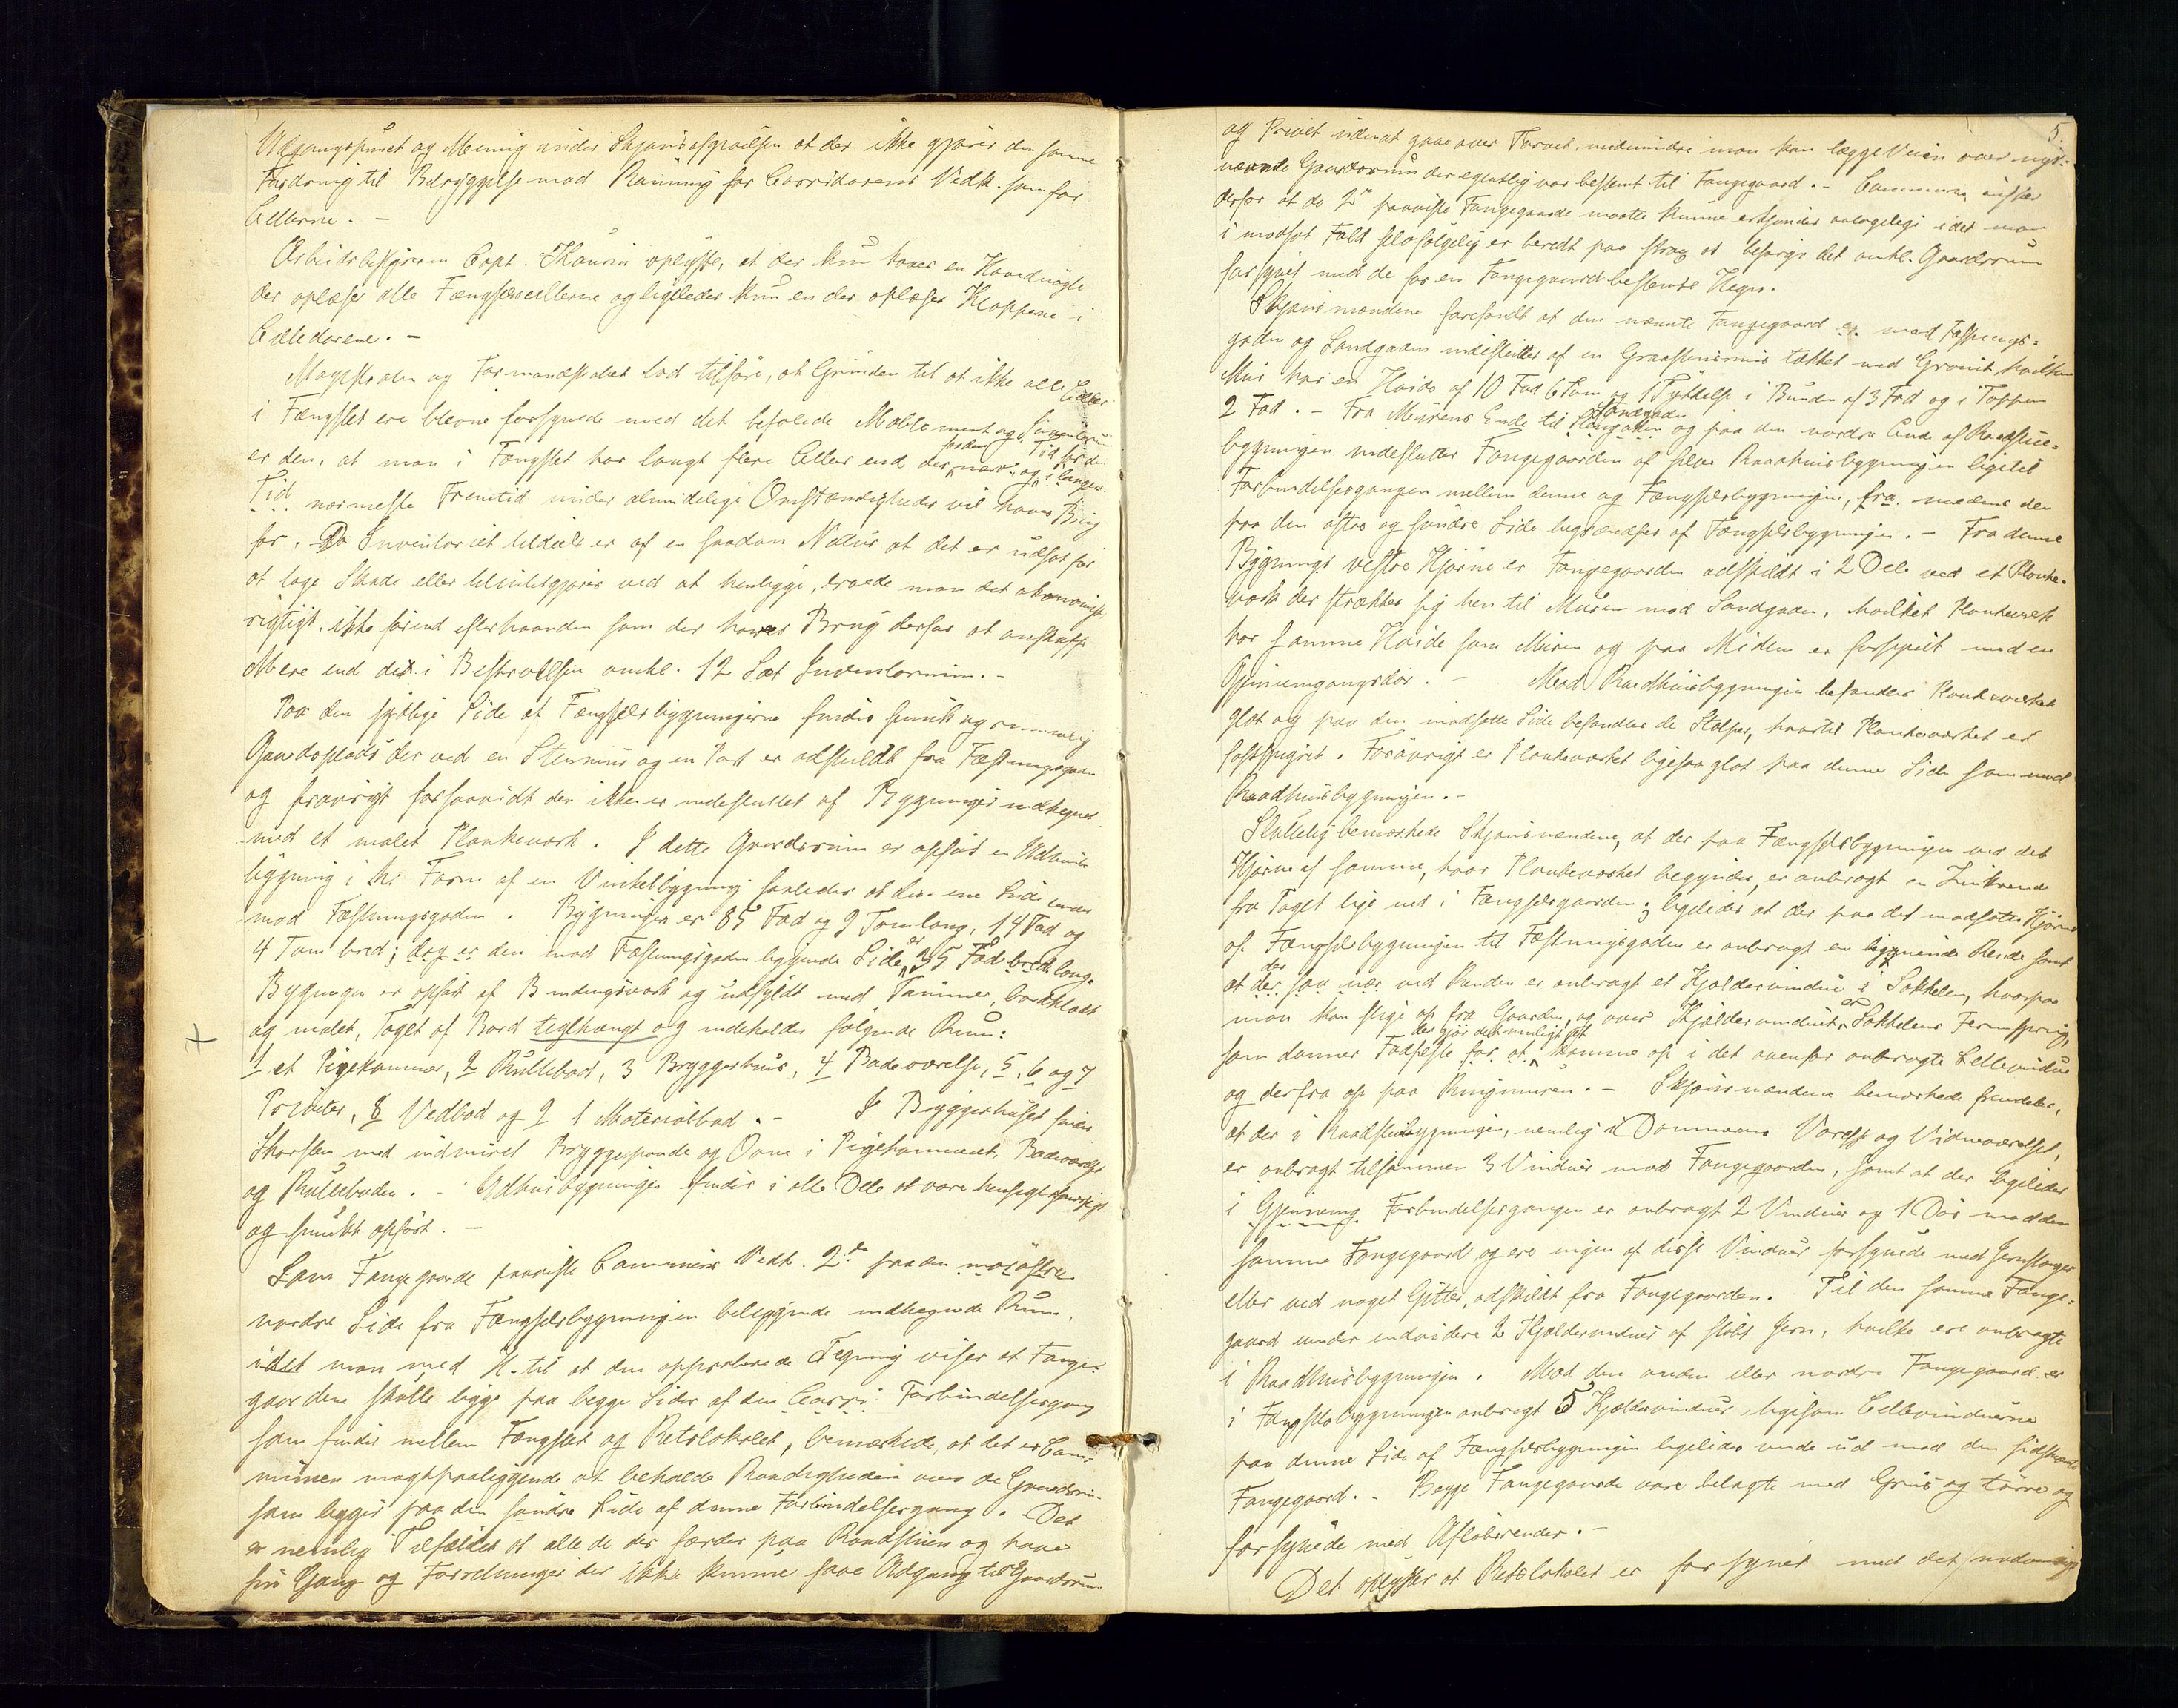 Udgangspunct og Mening under Skjønsafgivelsen at der ikke gjøres den samme
Fordring til Betryggelse mod Rømning for Corridorens Vedk. som for
Cellerne. -
Arbeidsbestyreren Capt. oplyste, at der kun haves en Hovednøgle
der oplaaser alle Fængselscellerne og ligeledes kun en der oplaaser Klappene i
Celledørene. -
Magistraten og Formandskabet lod tilføre, at Grunden til at ikke alle Celler
i Fængslet ere blevne forsynede med det befalede Møblement og Inventarium
er den, at man i Fængslet har langt flere Celler end der for den nær- og i længere Tid
Tid nærmeste Fremtid under almindelige Omstændigheder vil haves Brug
for. Da Inventariet tildeels er af en saadan Natur at det er udsat for
at tage Skade eller tilintetgjøres ved at henligge, troede man det økonomisk
rigtigt, ikke førend efterhaanden som der haves Brug derfor at anskaffe
Mere end det i Beskrivelsen omhl. 12 Sæt Inventarium. -
Paa den sydlige Side af Fængselsbygningerne findes smuk og rummelig
Gaardsplads der ved en Steenmur og en Port er adskildt fra Fæstningsgaden
og forøvrigt forsaavidt den ikke er indesluttet af Bygninger indhegnet
med et malet Plankeværk. I dette Gaardsrum er opført en Udhuus-
bygning i Form af en Vinkelbygning saaledes at den ene Side vender
mod Fæstningsgaden. Bygningen er 85 Fod og 9 Tom lang, 14 Fod og
4 Tom bred; dog er den mod Fæstningsgaden liggende Side er 35 Fod bred lang.
Bygningen er opført af Bindingsværk og udfyldt med Tømmer, bordklædt
og malet, Taget af Bord teglhængt og indeholder følgende Rum:
1 et Pigekammer, 2 Rullebod, 3 Bryggerhuus, 4 Badeværelse, 5, 6 og 7
Priveter, 8 Vedbod og 9 1 Materialbod. - I Bryggerhuset findes
Skorsten med indmuret Bryggepande og Ovne i Pigekammeret, Badeværelset
og Rulleboden. - Udhuusbygningen findes i alle Dele at være hensigtsmæssigt
og smukt opført. -
Som Fangegaarde paaviste Communens Vedk. 2de paa den nordøstre
nordre Side fra Fængselsbygningen beliggende indhegnede Rum,
idet man med H. til at den approberede Tegning viser at Fange-
gaardene skulle ligge paa begge Sider af den Corri Forbindelsesgang
som findes mellem Fængslet og Retslokalet, bemærkede, at det er Com-
munen magtpaaliggende at beholde Raadigheden over det Gaardsrum
som ligger paa den søndre Side af denne Forbindelsesgang. Det
er nemlig Tilfældet at alle de der færdes paa Raadstuen og have
sin Gang og Forretninger der ikke kunne faae Adgang til Gaardsrum
5.
og Privet uden at gaae over Torvet, medmindre man kan lægge Veien over nys-
nævnte Gaardsrum der egentlig var bestemt til Fangegaard. - Communen ansøger
derfor at de 2de paaviste Fangegaarde maatte kunne erkjendes antagelige idet man
i modsat Fald selvfølgelig er beredt paa strax at besørge det omhl. Gaardsrum
forsynet med de for en Fangegaard bestemte Hegn.
Skjønsmændene forefandt at den nævnte Fangegaard er mod Fæstnings-
gaden og Sandgaden indesluttet af en Graasteensmuur tækket med Granit, hvilken
Muur har en Høide af 10 Fod 6 Tom og 1 Tykkelse i Bunden af 3 Fod og i Toppen
2 Fod. - Fra Murens Ende til Langaden Sandgaden og paa den nordre Ende af Raadstue-
bygningen indesluttes Fangegaarden af selve Raadhuusbygningen ligetil
Forbindelsesgangen mellem denne og Fængselsbygningen, fra medens den
paa den østre og søndre Side begrændses af Fængselsbygningen. - Fra denne
Bygnings vestre Hjørne er Fangegaarden adskildt i 2 Dele ved et Planke-
værk der strækker sig hen til Muren mod Sandgaden, hvilket Plankeværk
har samme Høide som Muren og paa Midten er forsynet med en
Gjennemgangsdør. - Mod Raadhuusbygningen befandtes Plankeværket
glat og paa den modsatte Side befandtes de Stolper, hvortil Plankeværket er
fastspigret. Forøvrigt er Plankeværket ligesaa glat paa denne Side som mod
Raadhuusbygningen. -
Sluttelig bemærkede Skjønsmændene, at der paa Fængselsbygningen ved det
Hjørne af samme, hvor Plankeværket begynder, er anbragt en Zinkrende
fra Taget lige ned i Fængselsgaarden; ligeledes at der paa det modsatte Hjørne
af Fængselsbygningen til Fæstningsgaden er anbragt en lignende Rende samt
at der der saa nær ved Renden er anbragt et Kjældervindue i Sokkelen, hvorpaa
man kan stige op fra Gaarden, og over Kjældervinduet er Sokkelens Fremspring,
som danner Fodfæste for at der gjør det muligt at komme op i det ovenfor anbragte Cellevindue
og derfra op paa Ringmuren. - Skjønsmændene bemærkede fremdeles,
at der i Raadstuebygningen, nemlig i Dommerens Værelse og Vidneværelset,
er anbragt tilsammen 3 Vinduer mod Fangegaarden, samt at der ligeledes
i Gjennemg Forbindelsesgangen er anbragt 2 Vinduer og 1 Dør mod den
samme Fangegaard og ere ingen af disse Vinduer forsynede med Jernstænger
eller ved noget Gitter, adskildt fra Fangegaarden. Til den samme Fange-
gaard vender endvidere 2 Kjældervinduer af støbt Jern, hvilke ere anbragte
i Raadhuusbygningen. Mod den anden eller nordre Fangegaard er
i Fængselsbygningen anbragt 5 Kjældervinduer, ligesom Cellevinduerne
paa denne Side af Fængselsbygningen ligeledes vende ud mod den sidstnævnte
Fangegaard. - Begge Fangegaarde vare belagte med Gruus og tørre og
forsynede med Afløbsrender. -
Det oplystes at Retslokalet er forsynet med det nødvendige